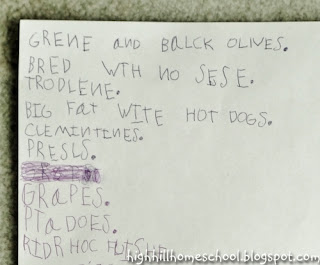 GRENE and BALCK OLIVES.
BRED WTH no SESE.
TRODLENE.
BIG FAT WITE HOT DOGS.
CLEMINTINES.
PRESLS.
GRAPES.
PTADOES.
RIDR HOC
highhillhomeschool.blogspot.com